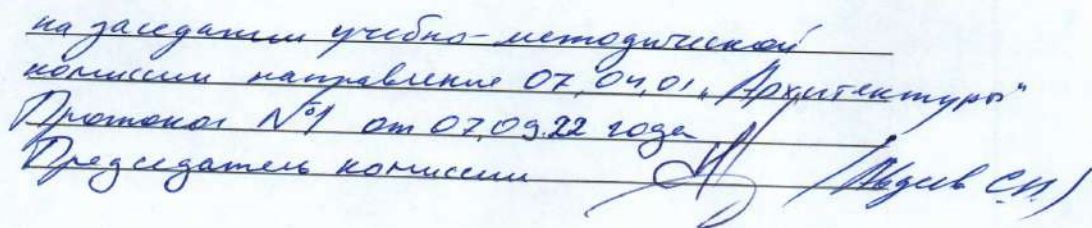 на заседании учебно-методической
комиссии направление 07,04,01 „Архитектуры"
Протокол №1 от 07,09.22 года
Председатель комиссии / Авдеев С.П. /